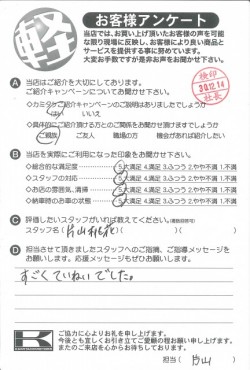 軽
お客様アンケート
当店では、お買い上げ頂いたお客様の声を可能
な限り現場に反映し、お客様により良い商品と
サービスを提供する事に努めています。
大変お手数ですが是非お声をお聞かせ下さい。
検印
30.12.14
社長
A 当店はご紹介を大切にしております。
ご紹介キャンペーンについてお聞かせ下さい。
◇カミタケご紹介キャンペーンのご説明はありましたでしょうか
はい いいえ
◇具体的にご紹介頂ける方とのご関係をお聞かせ頂けますでしょうか
ご親族 ご友人 職場の方 機会があれば紹介したい
B 当店を実際にご利用になった印象をお聞かせ下さい。
◇総合的な満足度 5.大満足 4.満足 3.ふつう 2.やや不満 1.不満
◇スタッフの対応 5.大満足 4.満足 3.ふつう 2.やや不満 1.不満
◇お店の雰囲気、清掃 5.大満足 4.満足 3.ふつう 2.やや不満 1.不満
◇納車時のお車の状態 5.大満足 4.満足 3.ふつう 2.やや不満 1.不満
C 評価したいスタッフがいれば教えてください。(複数回答可)
スタッフ名( 片山 )
D 担当させて頂きましたスタッフへのご感想、ご指導メッセージを
お願いします。応援メッセージもぜひお願いします。
すごくていねいでした。
K
ご協力に心よりお礼を申し上げます。
今後とも宜しくお引き立てご愛顧の程お願い申し上げます。
またのご来店を心からお待ちしております。
担当( 片山 )